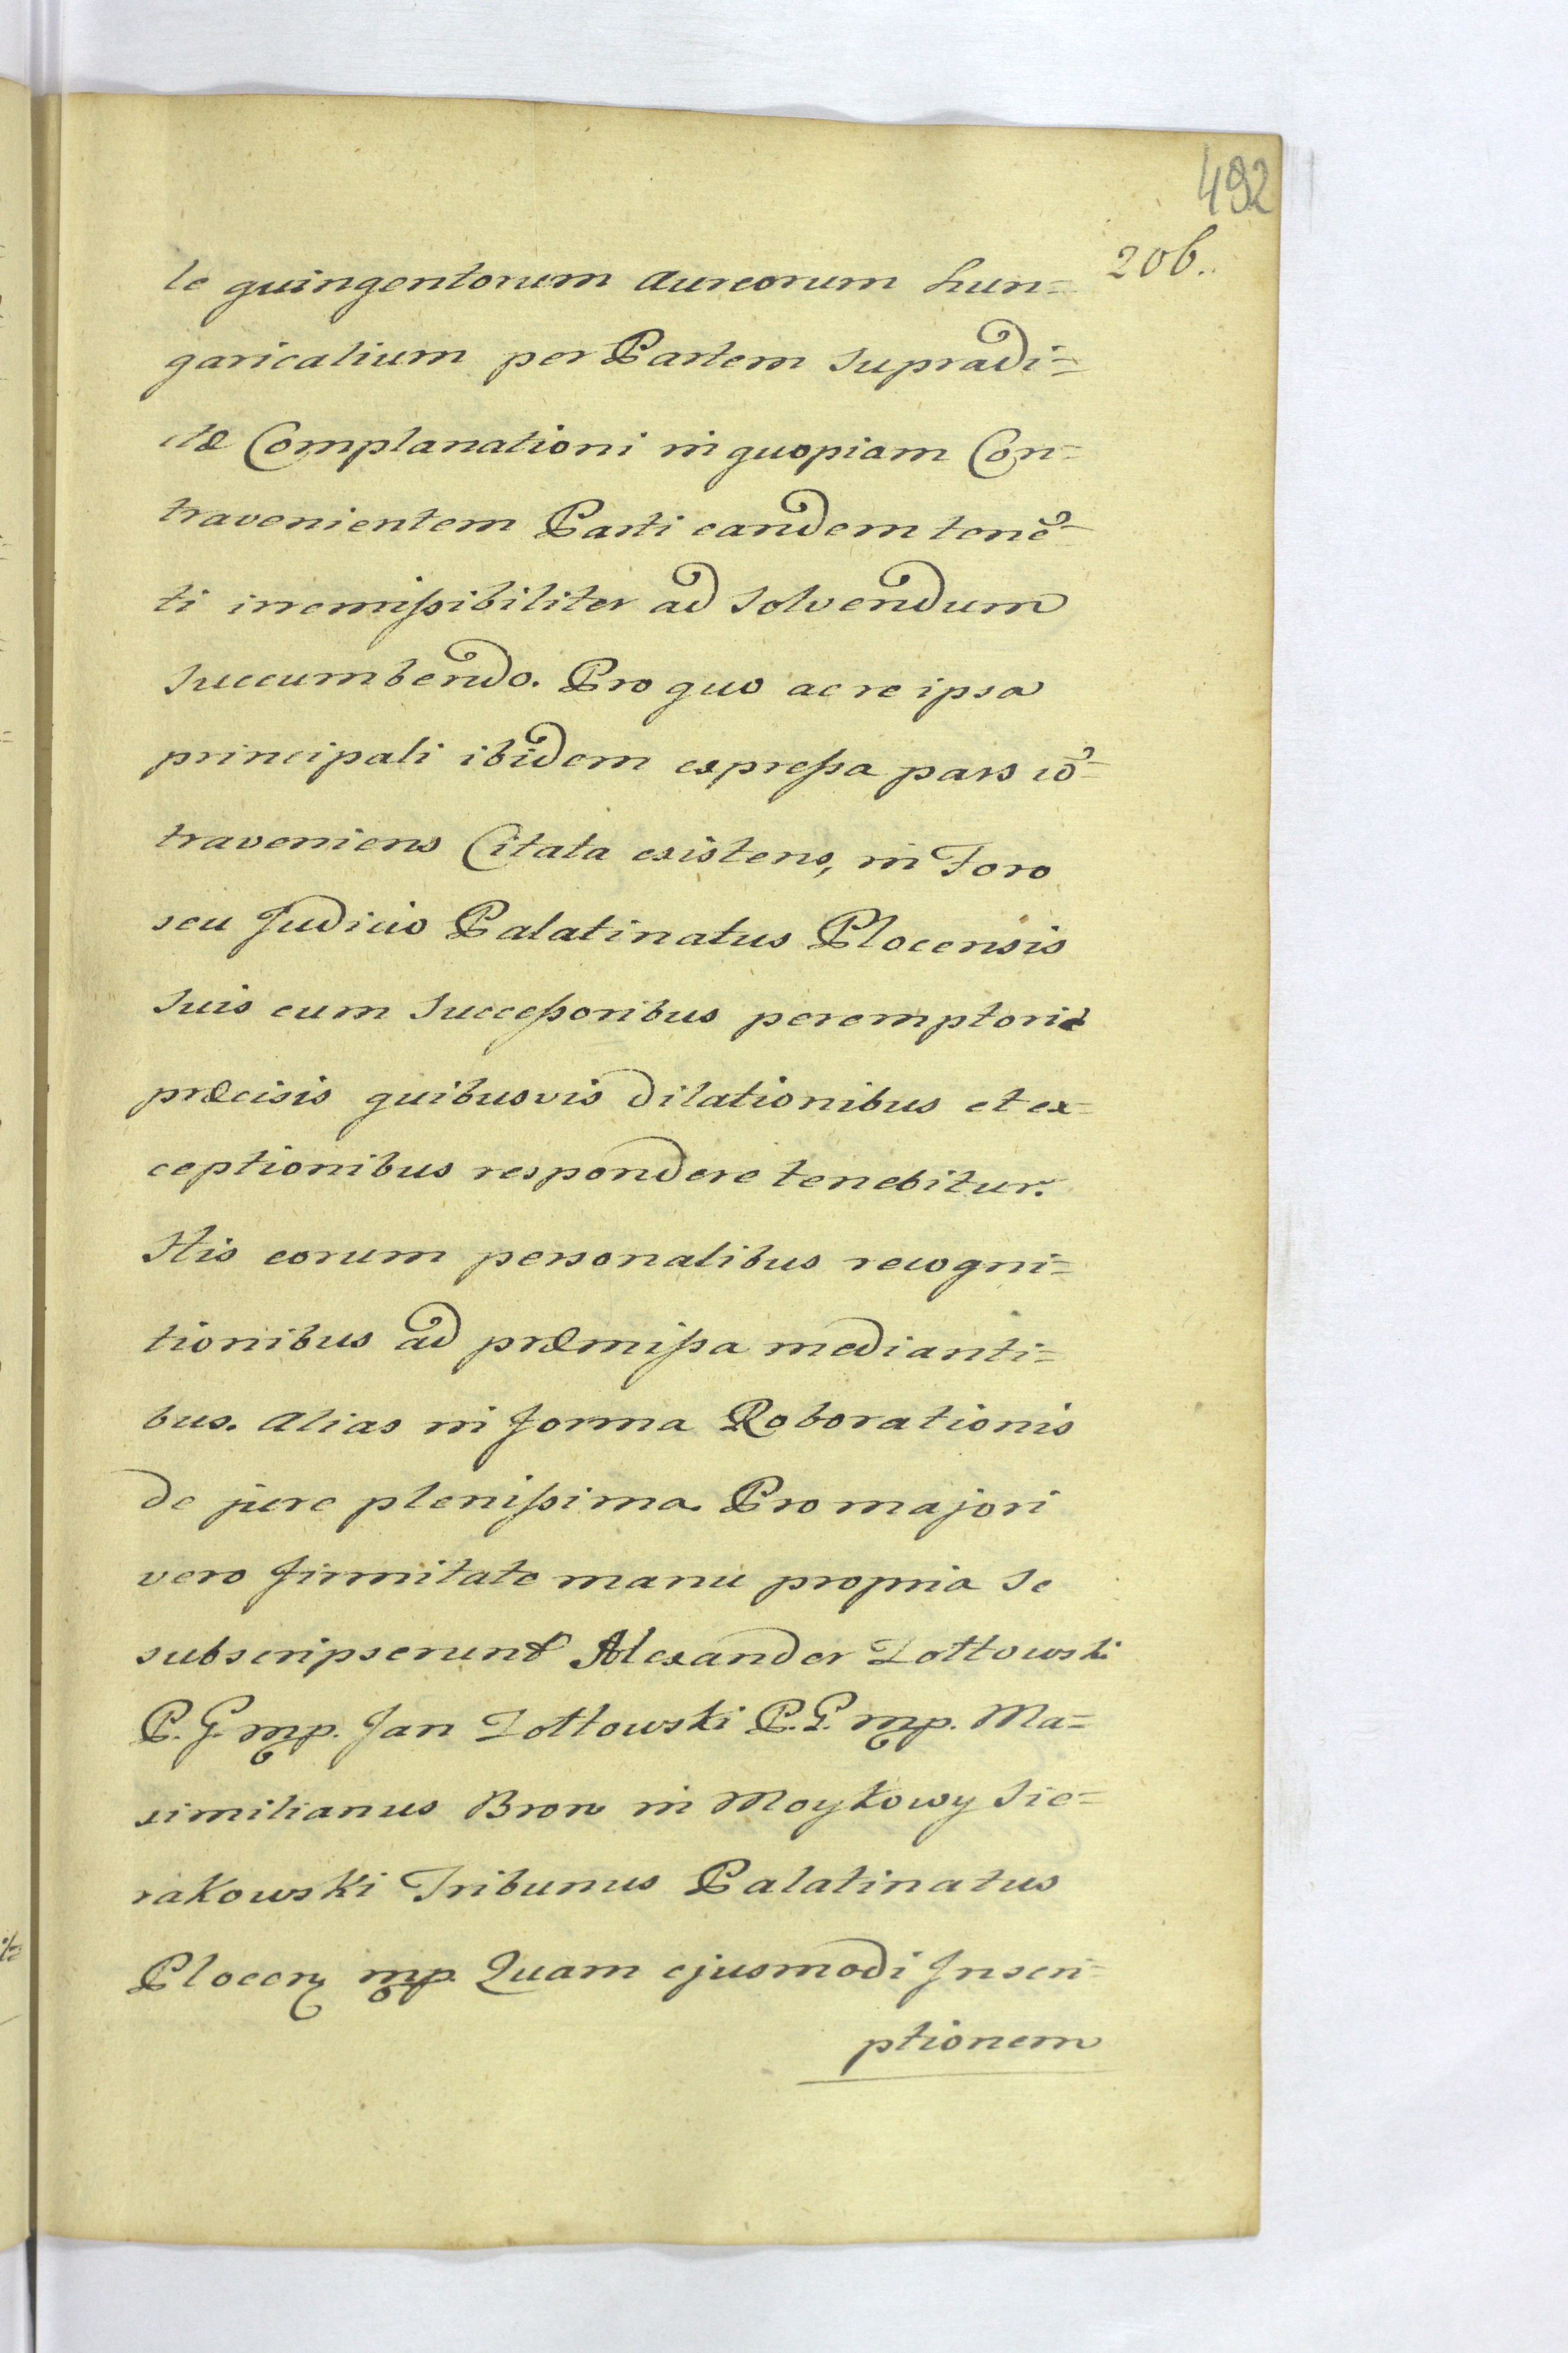 492
206.
le quingentorum Aureorum hun=
garicalium per Partem supradi=
ctæ Complanationi in quopiam Con=
travenientem Parti eandem tenẽ=
ti irremißibiliter ad solvendum
succumbendo. Pro quo ac re ipsa
principali ibidem expreßa pars cõ=
traveniens Citata existens, in Foro
seu Judicio Palatinatus Plocensis
suis cum succeßoribus peremptorie
præcisis quibusvis dilationibus et ex=
ceptionibus respondere tenebitur.
His eorum personalibus recogni=
tionibus ad præmißa medianti=
bus. Alias in forma Roborationis
de jure plenißima. Pro majori
vero firmitate manu propria se
subscripserunt Alexander Zottowski
P. G. mp. Jan Zottowski P. G. mp. Ma=
ximilianus Bron in Moykowy Sie=
rakowski Tribunus Palatinatus
Plocen mp. Quam ejusmodi Inscri=
ptionem